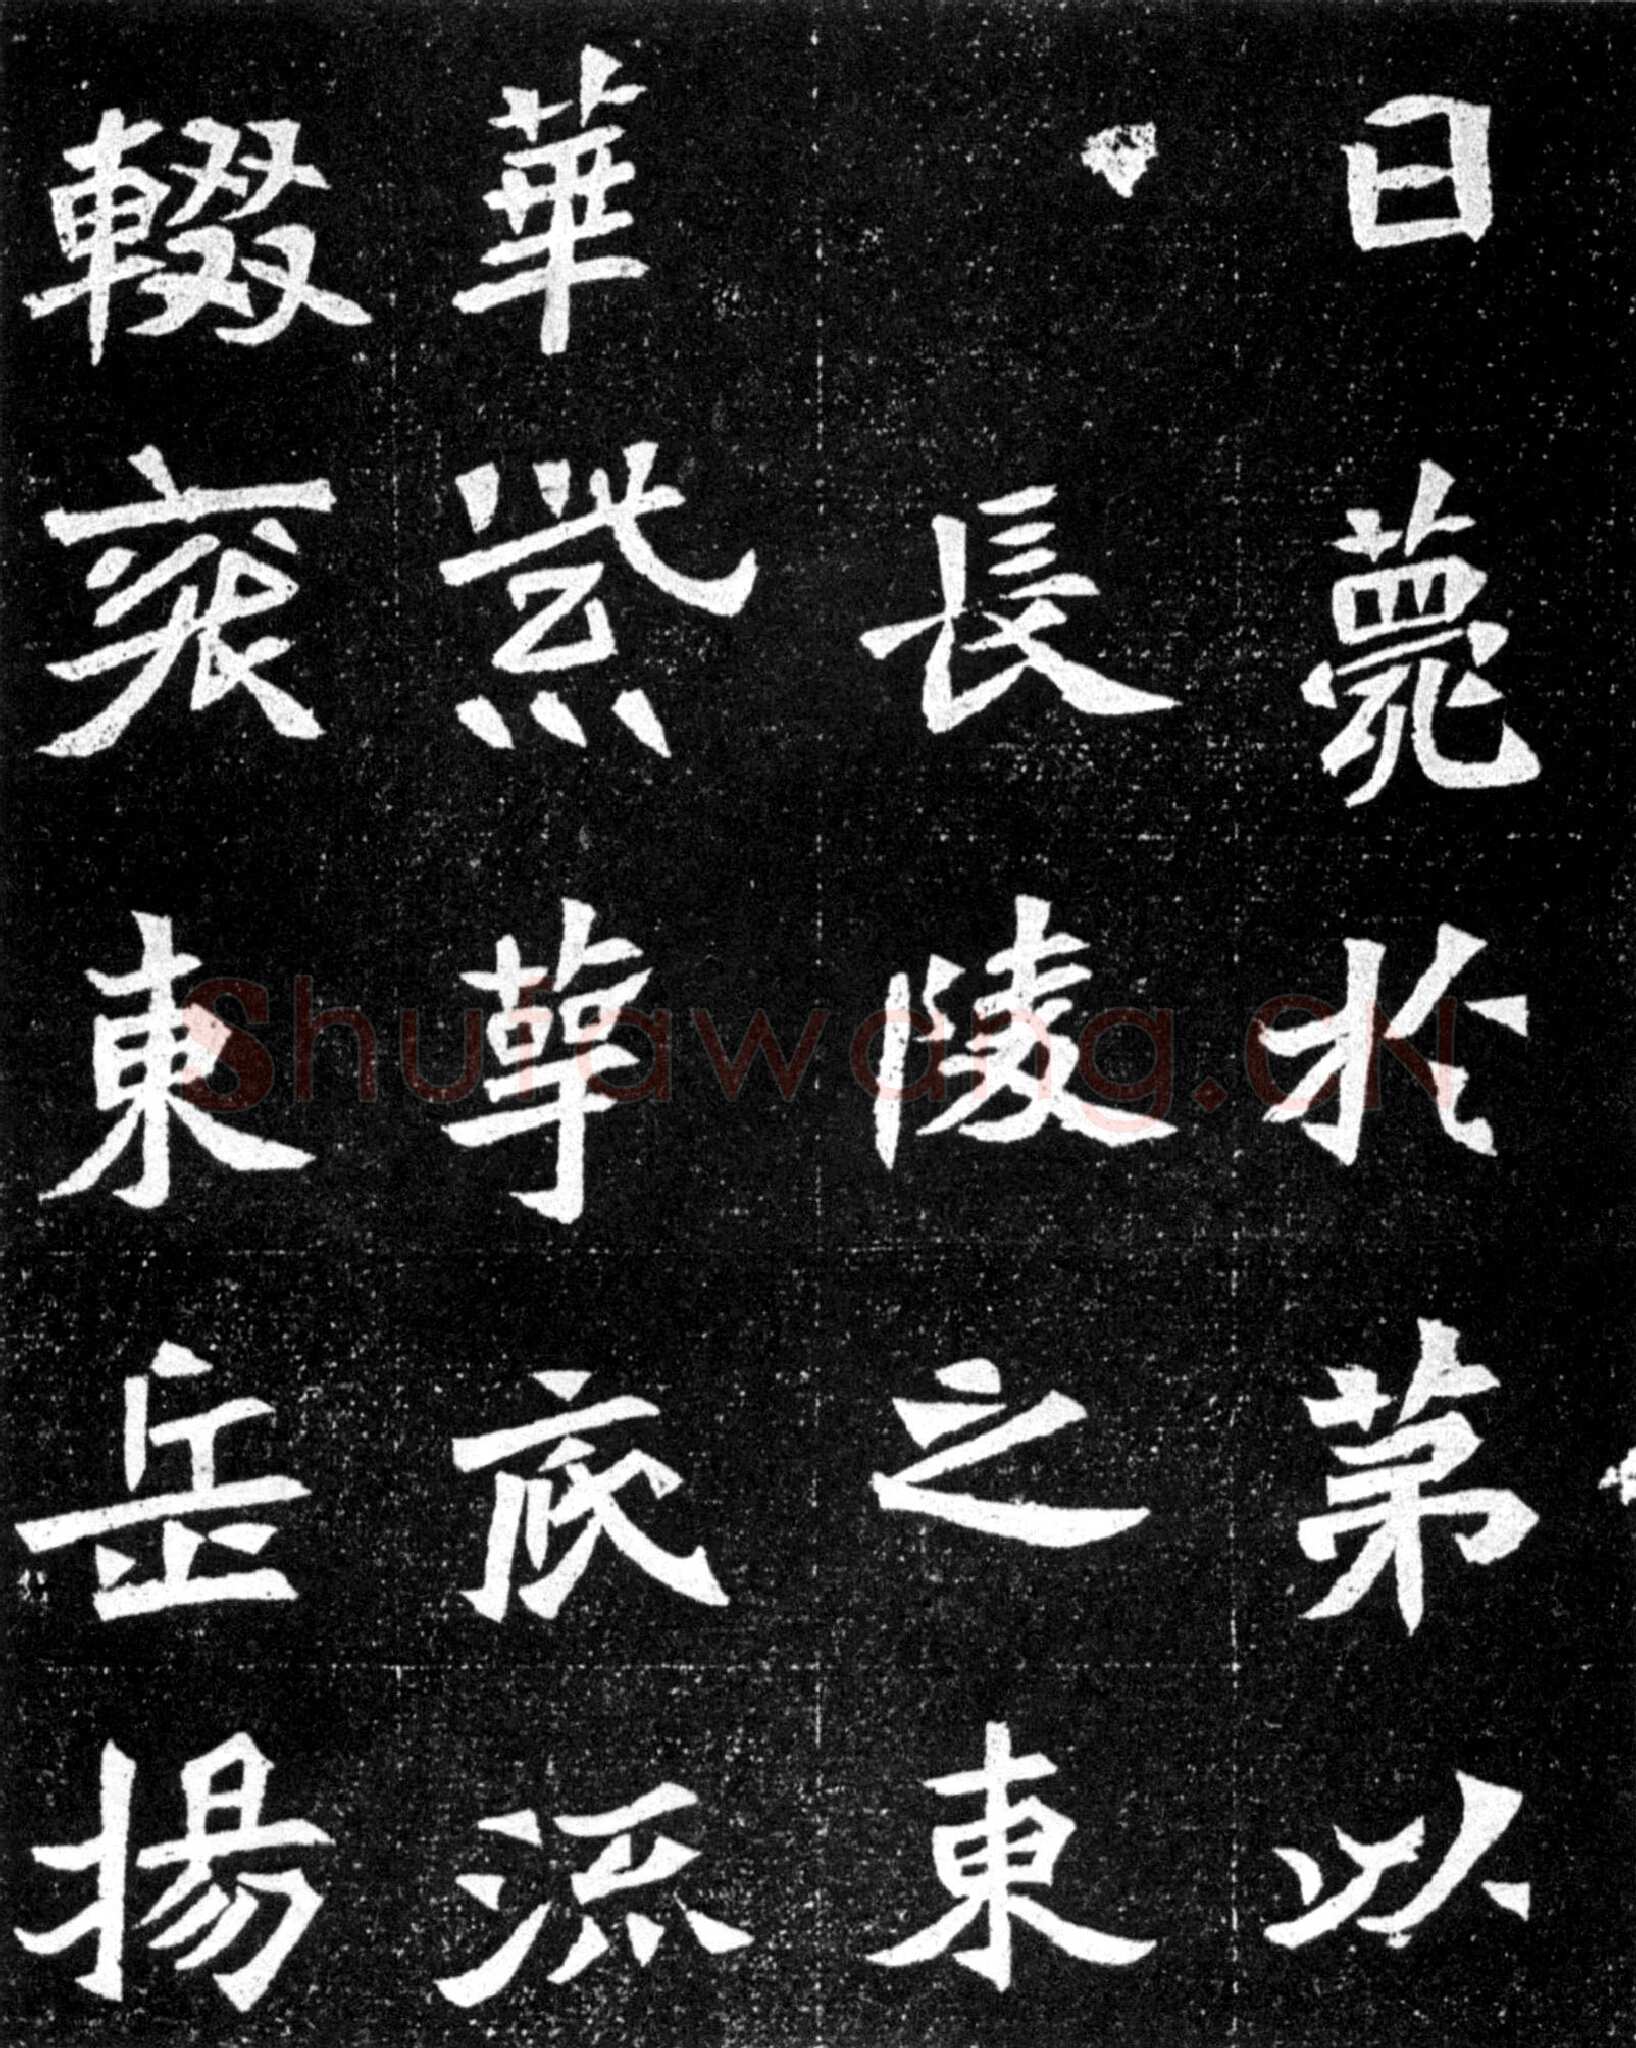 日薨於苐以
長陵之東
華紫萼底流
輟衮東岳揚
Shufawang.CN